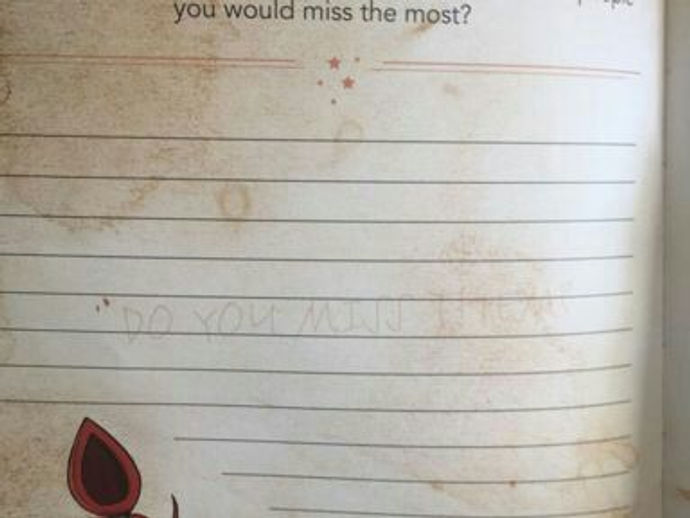 you would miss the most?
DO YOU MISS THEM